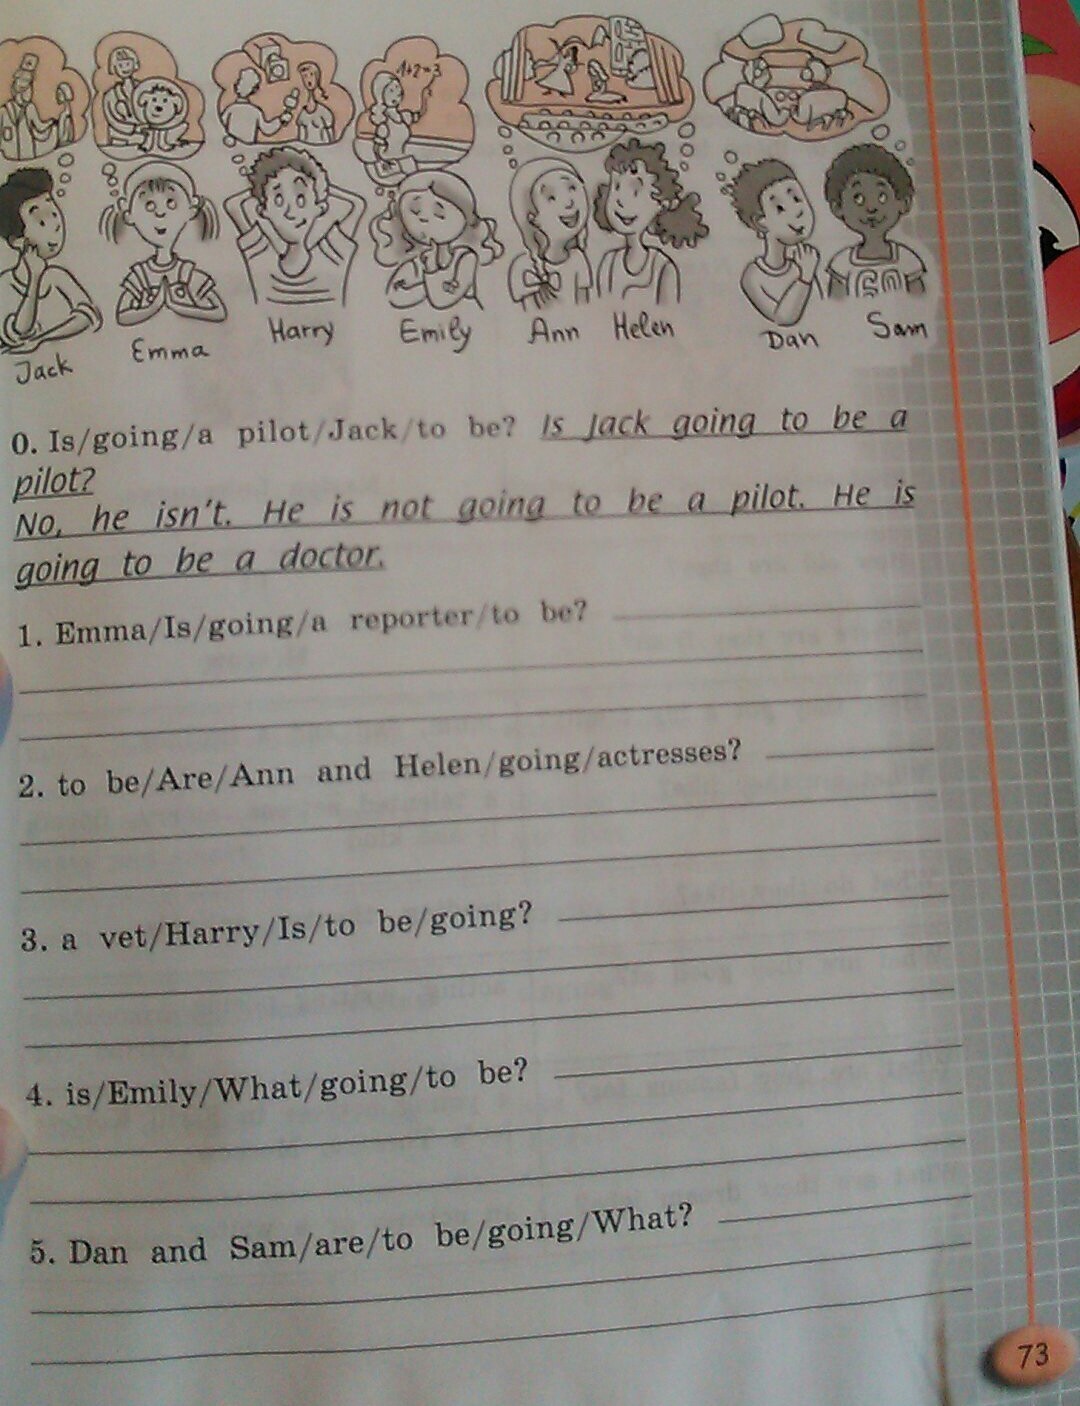 1+2=3
Jack
Emma
Harry
Emily
Ann
Helen
Dan
Sam
0. Is/going/a pilot/Jack/to be? Is Jack going to be a
pilot?
No, he isn't. He is not going to be a pilot. He is
going to be a doctor.
1. Emma/Is/going/a reporter/to be?
2. to be/Are/Ann and Helen/going/actresses?
3. a vet/Harry/Is/to be/going?
4. is/Emily/What/going/to be?
5. Dan and Sam/are/to be/going/What?
73